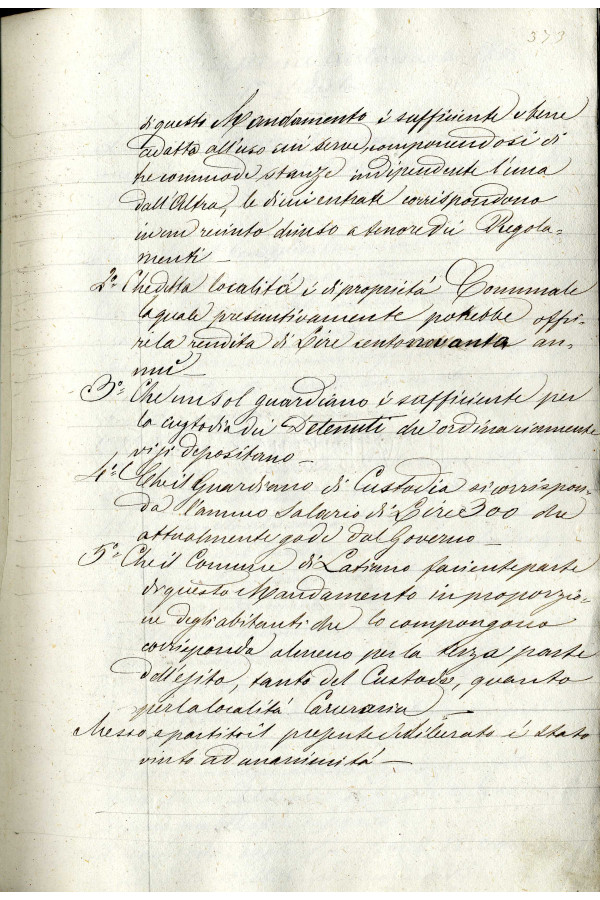 373
di questo Mandamento è sufficiente e bene
adatta all'uso cui serve, componendosi di
tre commode stanze indipendente l'una
dall'Altra, le di cui entrate corrispondono
in un recinto chiuso a tenore dei Regola=
menti —
2º Che detta località è di proprietà Comunale
la quale presuntivamente potrebbe offri=
re la rendita di Lire cento novanta an=
nue
3º Che un sol guardiano è sufficiente per
la custodia dei Detenuti che ordinariamente
vi si depositano —
4º Che il Guardiano di Custodia si corrispon=
da l'annuo Salario di Lire 300 che
attualmente gode dal Governo —
5º Che il Comune di Latiano faciente parte
di questo Mandamento in proporzio=
ne degli abitanti che lo compongono
corrisponda almeno per la terza parte
dell'esito, tanto del Custode, quanto
per la località Carceraria
Messo a partito il presente deliberato è stato
vinto ad unanimità —